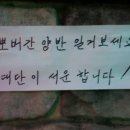 뽀버간 양반 일거보세요
대단이 서운 합니다!